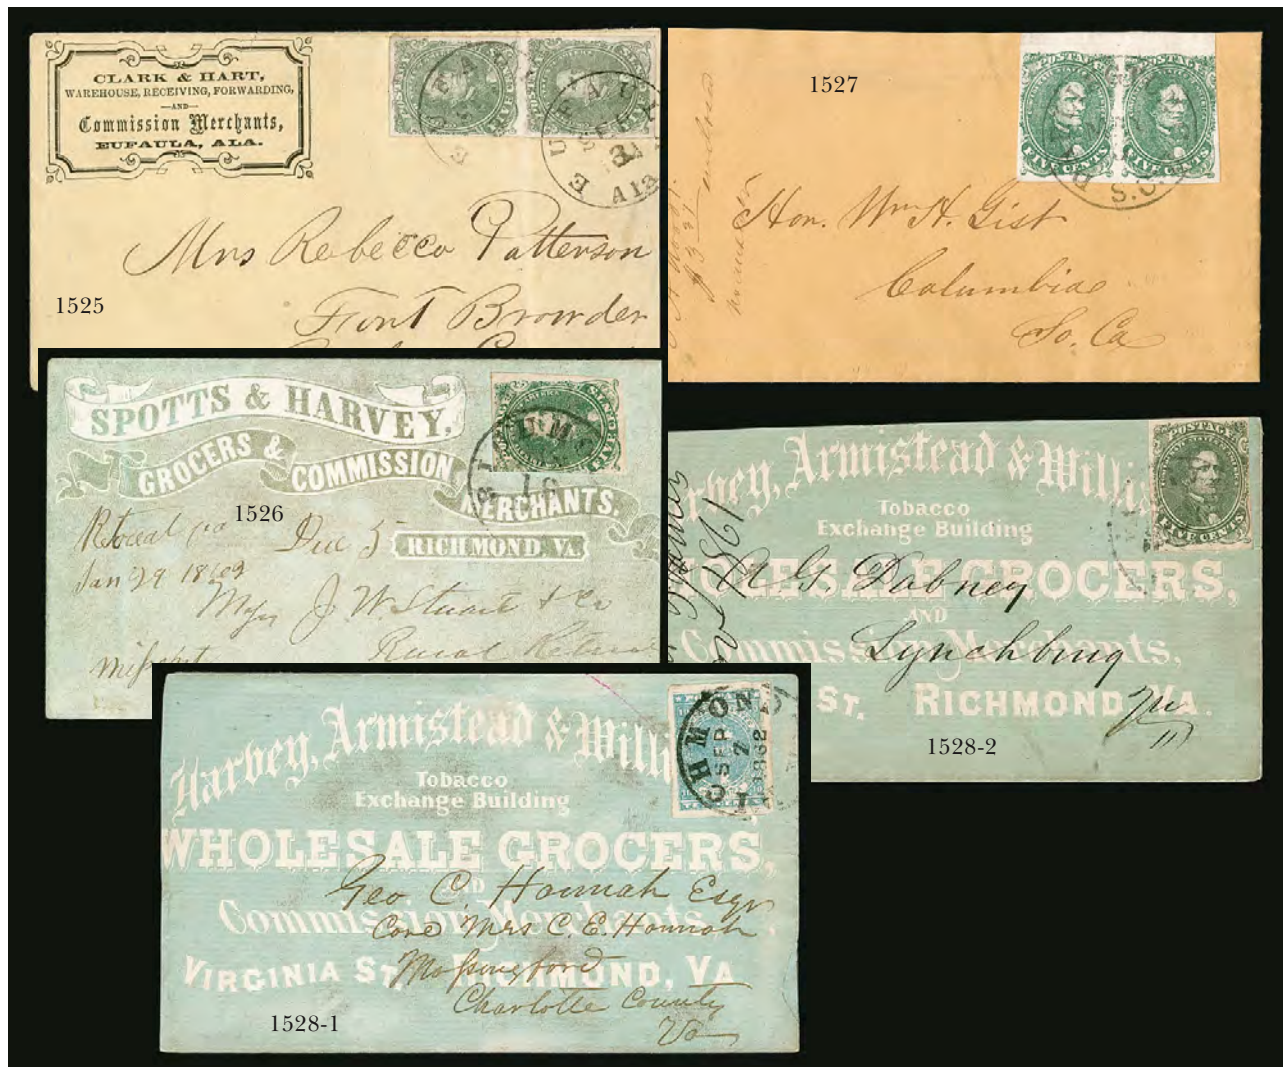 CLARK & HART,
WAREHOUSE, RECEIVING, FORWARDING,
—AND—
Commission Merchants,
EUFAULA, ALA.
EUFAULA
FEB
Ala
Mrs Rebecca Patterson
Fort Browder
1525
1527
POSTAGE
FIVE CENTS
FIVE CENTS
S.C.
Hon. Wm H. Gist
Columbia
So. Ca
SPOTTS & HARVEY,
GROCERS &
COMMISSION
MERCHANTS.
RICHMOND, VA
1526
Due 5
Jany 29 1863
J. W. Stuart & Co
Rural Retreat
missent
Harvey, Armistead & Willi
Tobacco
Exchange Building
WHOLESALE GROCERS,
AND
Commission Merchants,
ST. RICHMOND, VA.
POSTAGE
FIVE CENTS
1861
A. G. Dabney
Lynchburg
1528-2
Harvey, Armistead & Willi
Tobacco
Exchange Building
WHOLESALE GROCERS,
AND
Commission Merchants,
VIRGINIA ST. RICHMOND, VA
CHMOND
SEP
7
1862
Geo C. Hannah Esqr
Care Mrs C. E. Hannah
Mossingford
Charlotte County
Va
1528-1